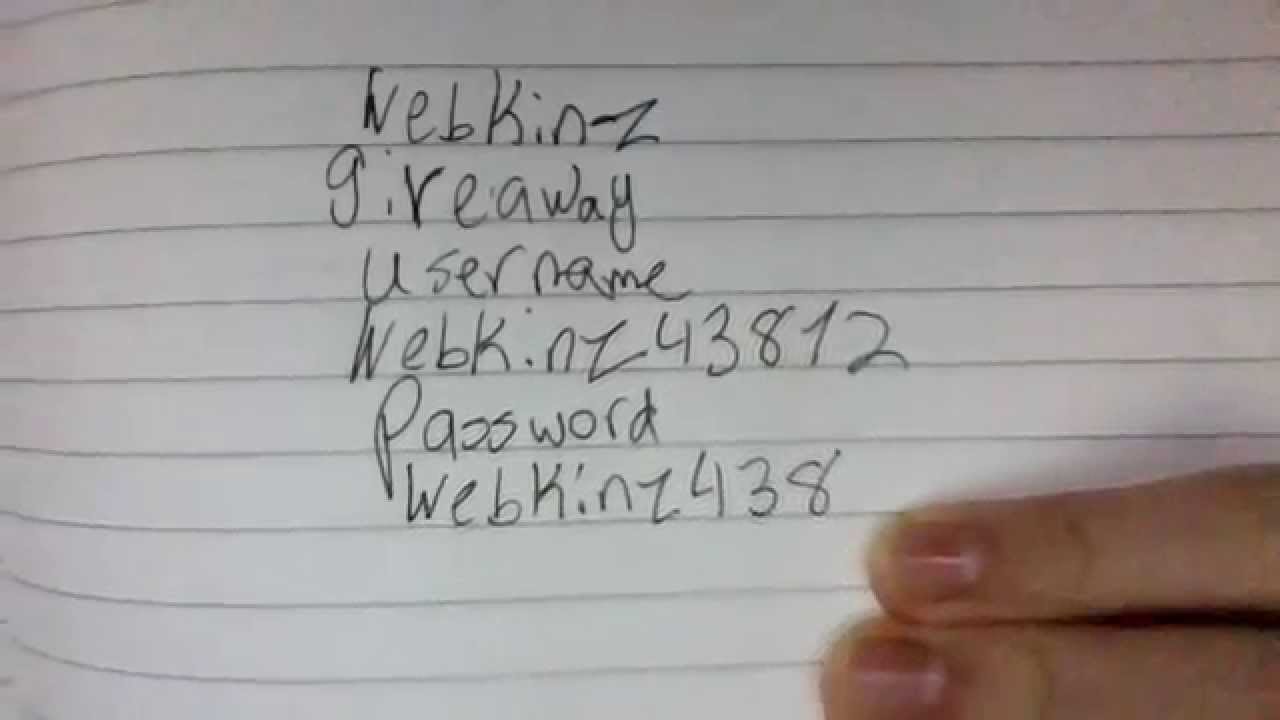 Webkinz
giveaway
username
Webkinz43812
Password
Webkinz438